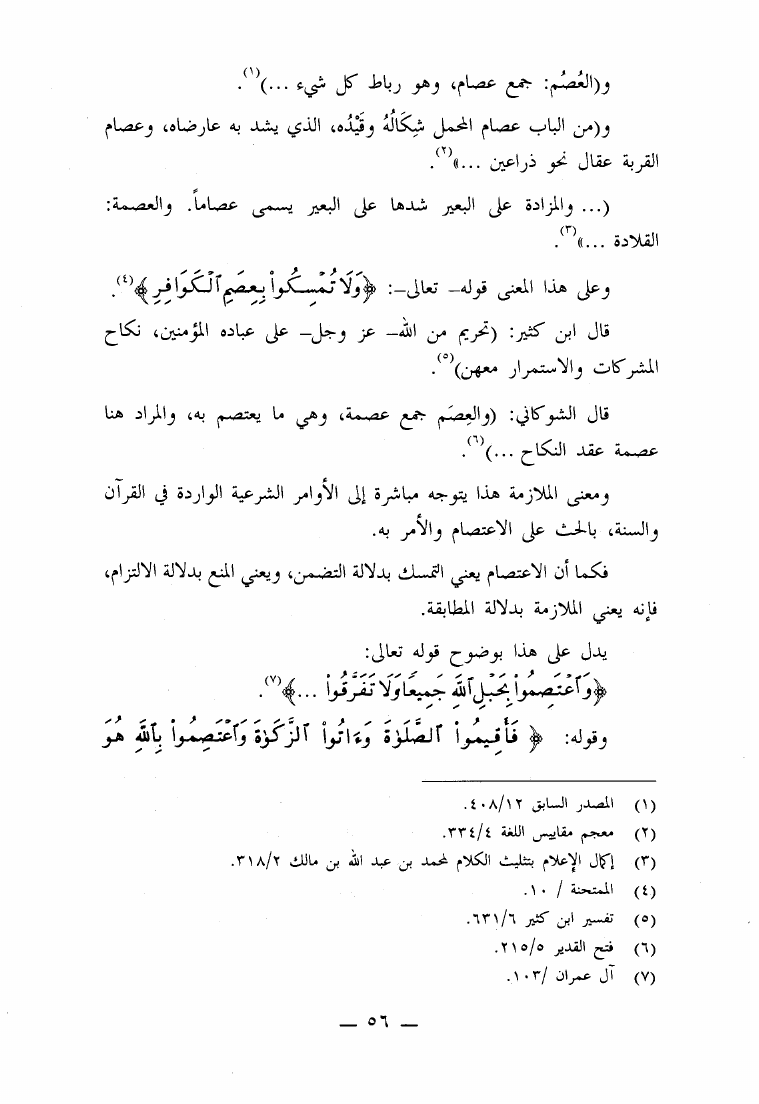 و(العُصُم: جمع عصام، وهو رباط كل شيء ...)(١).
و(من الباب عصام المحمل شِكَالُهُ وقَيْدُه، الذي يشد به عارضاه، وعصام
القربة عقال نحو ذراعين ...»(٢).
(... والمزادة على البعير شدها على البعير يسمى عصاماً. والعصمة:
القلادة ...»(٣).
وعلى هذا المعنى قوله– تعالى–: ﴿وَلَا تُمْسِكُوا۟ بِعِصَمِ ٱلْكَوَافِرِ﴾(٤).
قال ابن كثير: (تحريم من الله– عز وجل– على عباده المؤمنين، نكاح
المشركات والاستمرار معهن)(٥).
قال الشوكاني: (والعِصَم جمع عصمة، وهي ما يعتصم به، والمراد هنا
عصمة عقد النكاح ...)(٦).
ومعنى الملازمة هذا يتوجه مباشرة إلى الأوامر الشرعية الواردة في القرآن
والسنة، بالحث على الاعتصام والأمر به.
فكما أن الاعتصام يعني التمسك بدلالة التضمن، ويعني المنع بدلالة الالتزام،
فإنه يعني الملازمة بدلالة المطابقة.
يدل على هذا بوضوح قوله تعالى:
﴿وَٱعْتَصِمُوا۟ بِحَبْلِ ٱللَّهِ جَمِيعًا وَلَا تَفَرَّقُوا۟ ...﴾(٧).
وقوله: ﴿ فَأَقِيمُوا۟ ٱلصَّلَوٰةَ وَءَاتُوا۟ ٱلزَّكَوٰةَ وَٱعْتَصِمُوا۟ بِٱللَّهِ هُوَ
(١) المصدر السابق ٤٠٨/١٢.
(٢) معجم مقاييس اللغة ٣٣٤/٤.
(٣) إكمال الإعلام بتثليث الكلام لمحمد بن عبد الله بن مالك ٣١٨/٢.
(٤) الممتحنة / ١٠.
(٥) تفسير ابن كثير ٦٣١/٦.
(٦) فتح القدير ٢١٥/٥.
(٧) آل عمران /١٠٣.
— ٥٦ —